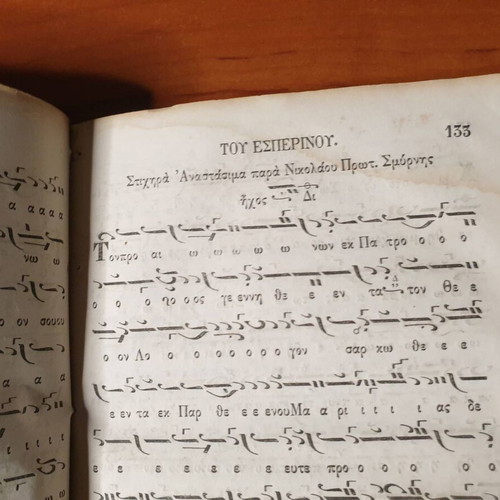 ΤΟΥ ΕΣΠΕΡΙΝΟΥ. 133
Στιχηρὰ Ἀναστάσιμα παρὰ Νικολάου Πρωτ. Σμύρνης
ἦχος Δι
Τόνπρο αι ω ω ω ω ω νων εκ Πα τρο ο ο ο
ο ο ο ο ος γε εννη θε ε εν τα τον Θε ε
ο ον Λο ο ο ο ο ο ο ο γον σαρ κω θε ε ε
ε εν τα εκ Παρ θε ε ε ενουΜα α ρι ι ι ι ας δε
ε ε ε ε ε ε ε ευτε προ ο ο ο ο ο
α α α α α
νω ω
ο ον σουου
α α α
ι ι ι ι
ω ω